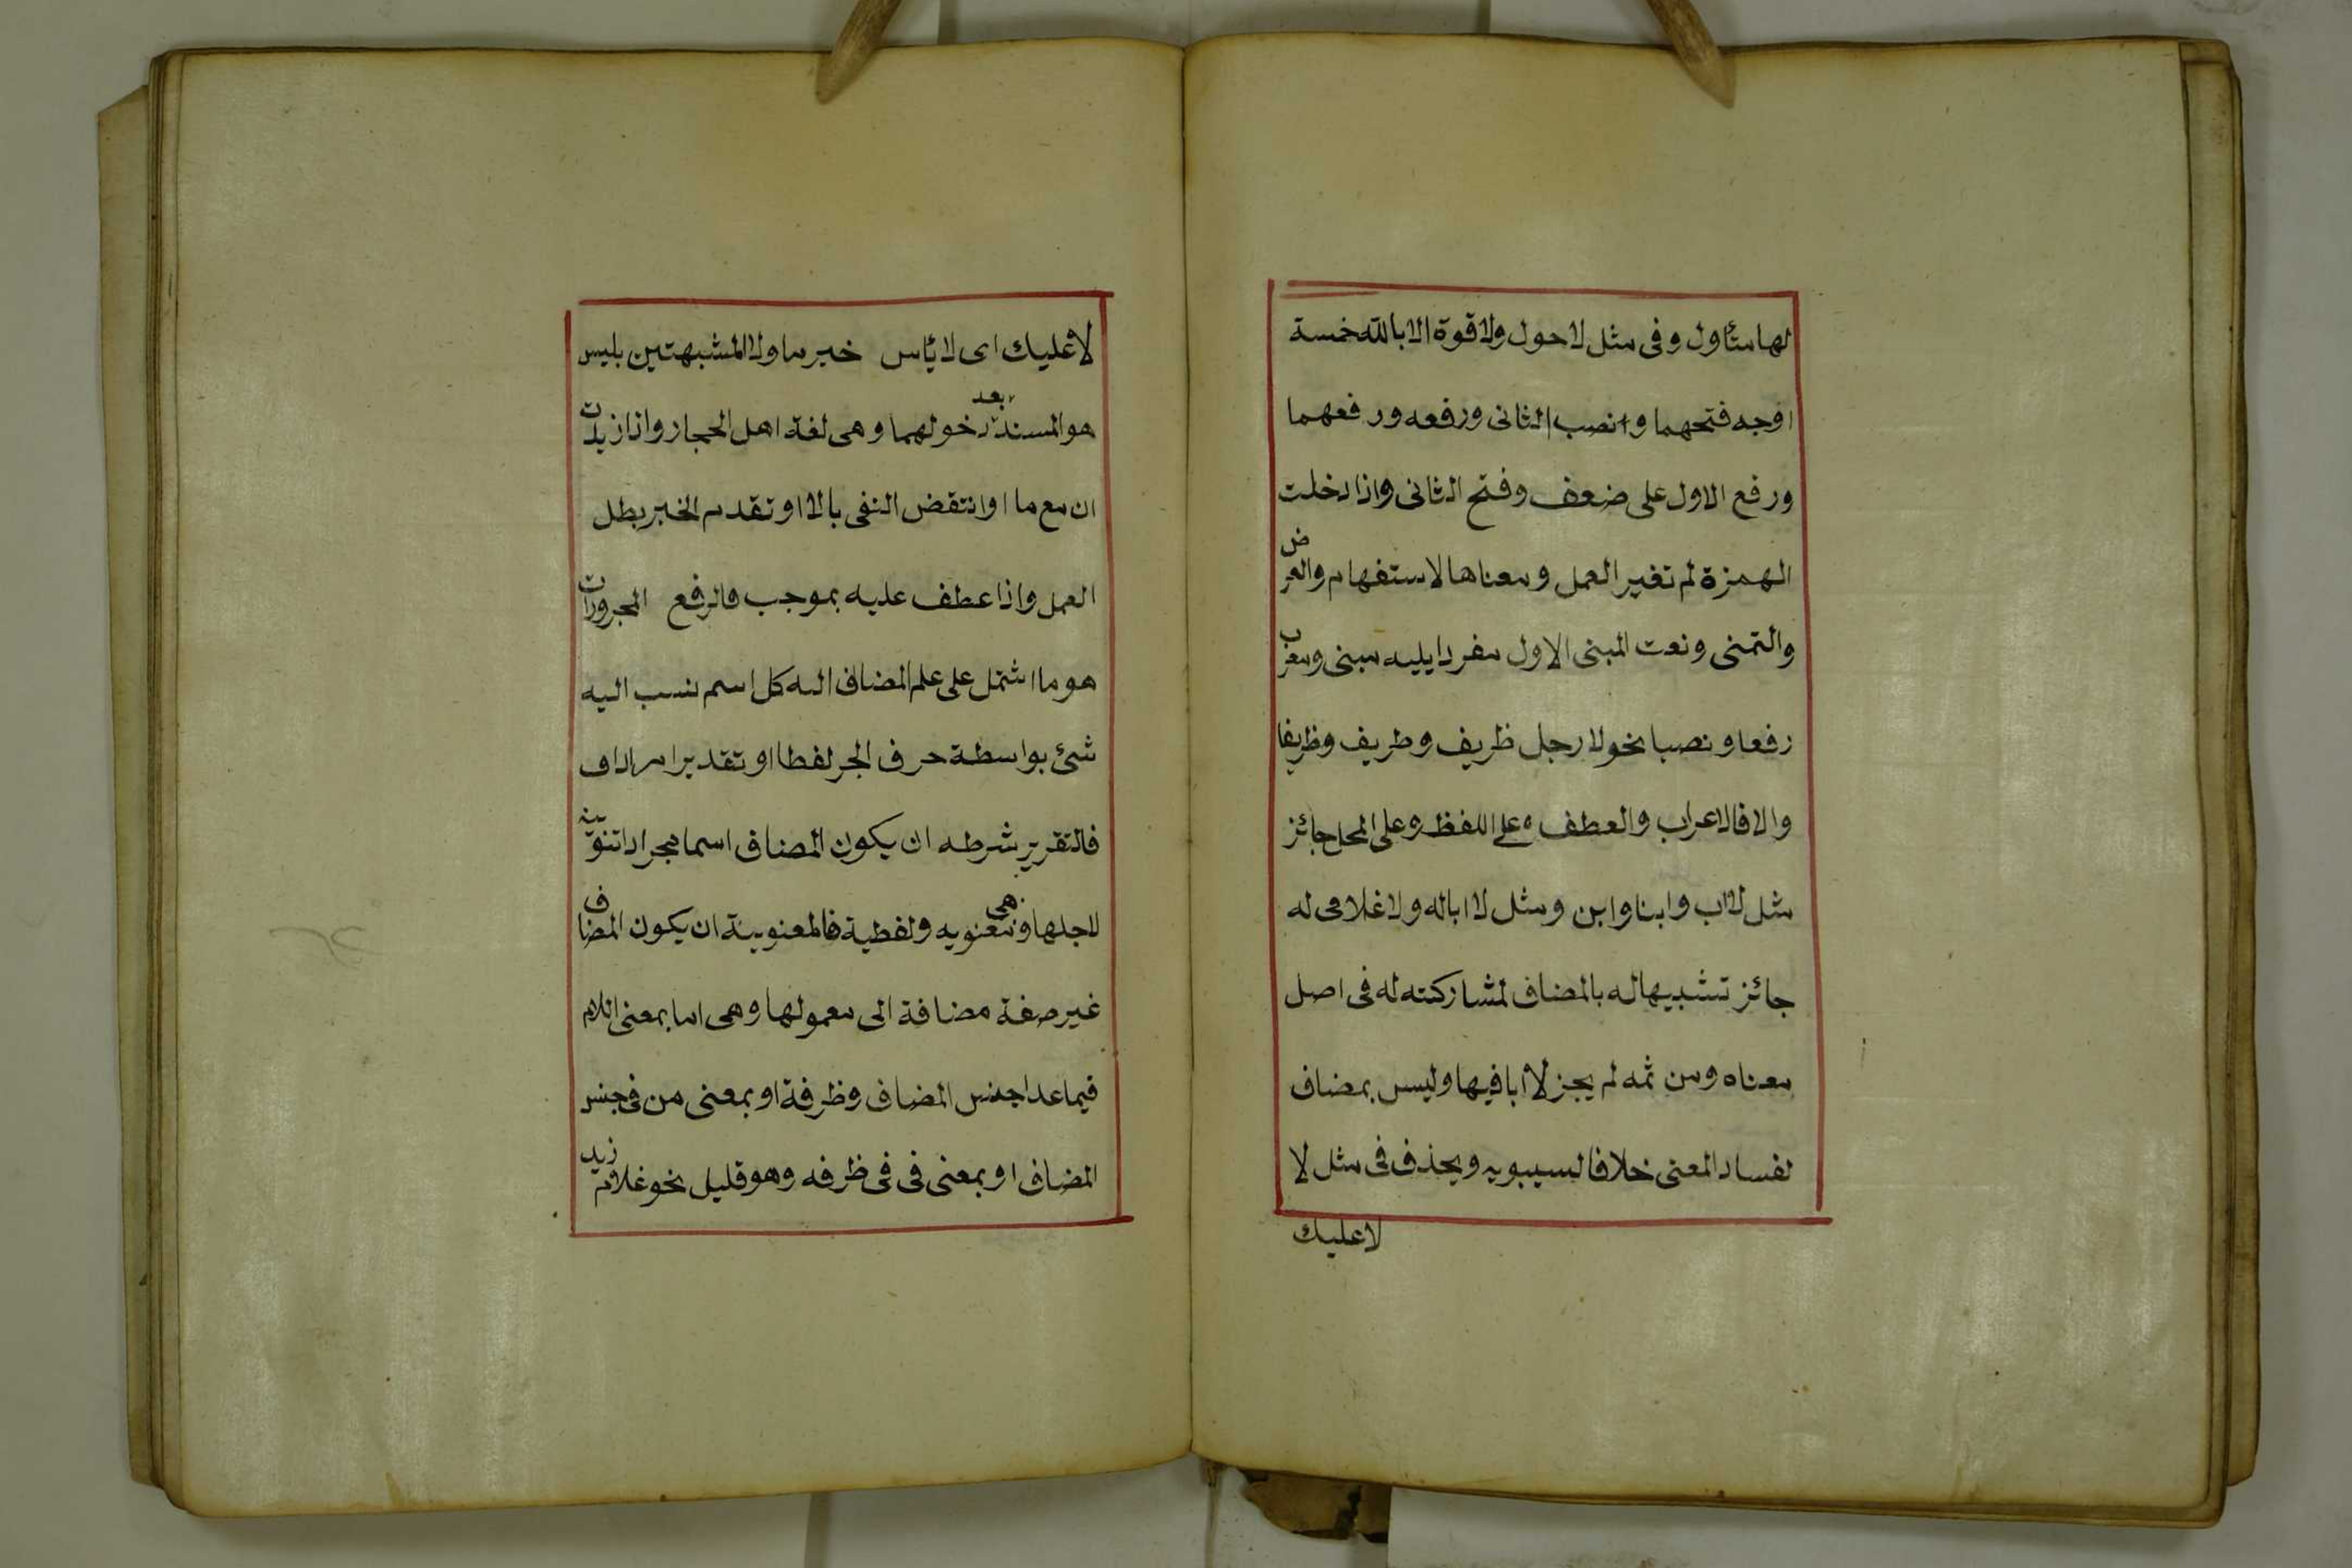 لها متٔاول وفى مثل لاحول ولا قوة الا بالله خمسة
اوجه فتحهما وانصب الثانى ورفعه ورفعهما
ورفع الاول على ضعف وفتح الثانى واذا دخلت
الهمزة لم تغير العمل ومعناها الاستفهام والعرض
والتمنى ونعت المبنى الاول مفردا يليه مبنى ومعرب
رفعا ونصبا نحو لا رجل ظريف وظريف وظريفا
والا فالاعراب والعطف على اللفظ وعلى المحل جائز
مثل لا اب وابنا وابن ومثل لا اباله ولا غلامى له
جائز تشبيها له بالمضاف لمشاركته له فى اصل
معناه ومن ثمه لم يجز لا ابا فيها وليس بمضاف
لفساد المعنى خلافا لسيبويه ويحذف فى مثل لا
لا عليك
لا عليك اى لا بٔاس خبر ما ولا المشبهتين بليس
هو المسند بعد دخولهما وهى لغة اهل الحجاز واذا زيدت
ان مع ما او انتقض النفى بالا او تقدم الخبر بطل
العمل واذا عطف عليه بموجب فالرفع المجرورات
هو ما اشتمل على علم المضاف اليه كل اسم نسب اليه
شئ بواسطة حرف الجر لفظا او تقديرا مرادا ف
فالتقرير شرطه ان يكون المضاف اسما مجرادا تنوينه
لاجلها وهى معنويه ولفظية فالمعنوية ان يكون المضاف
غير صفة مضافة الى معمولها وهى اما بمعنى اللام
فيما عدا جنس المضاف وظرفة او بمعنى من فى جنس
المضاف او بمعنى فى فى ظرفه وهو قليل نحو غلام زيد